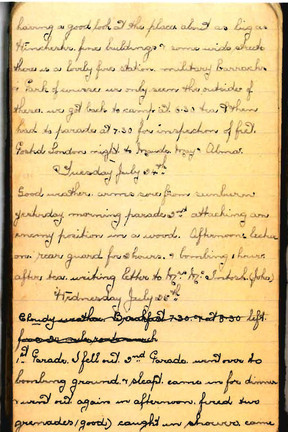 having a good look at the place about as big as
Hinchcks. fine buildings & some wide streets
there is a lovely fire station, military barracks
& Park of course we only seen the outside of
these, we got back to camp at 6.30 tea & then
had to parade at 7.30 for inspection of feet.
Posted London to Maude. May. Alma.
Tuesday July 25th
Good weather. arms sore from sunburn
yesterday morning parade 2nd attacking an
enemy position in a wood. Afternoon lecture
on rear guard for 2 hours. & bombing 1 hour.
after tea. writing letter to Mrs Mc Intosh. (John)
Wednesday July 26th
Cloudy weather. Breakfast 7.30. not 8.30 left
1st Parade. I fell out 2nd Parade went over to
bombing ground & sleapt. came in for dinner
& went out again in afternoon. fired two
grenades (good) caught in showers came